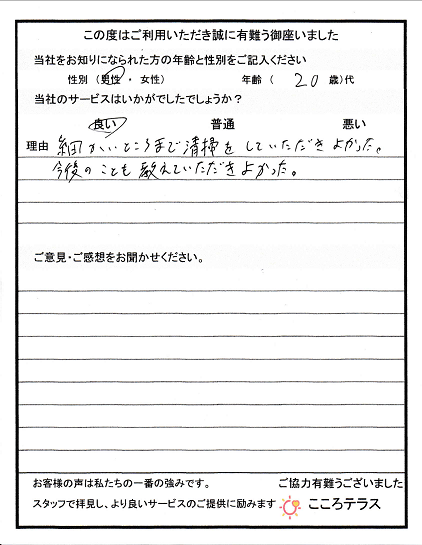 この度はご利用いただき誠に有難う御座いました
当社をお知りになられた方の年齢と性別をご記入ください
性別 (男性 ・ 女性) 年齢 ( 20 歳)代
当社のサービスはいかがでしたでしょうか？
良い 普通 悪い
理由 細かいところまで清掃をしていただきよかった。
今後のことも教えていただきよかった。
ご意見・ご感想をお聞かせください。
お客様の声は私たちの一番の強みです。 ご協力有難うございました
スタッフで拝見し、より良いサービスのご提供に励みます こころテラス